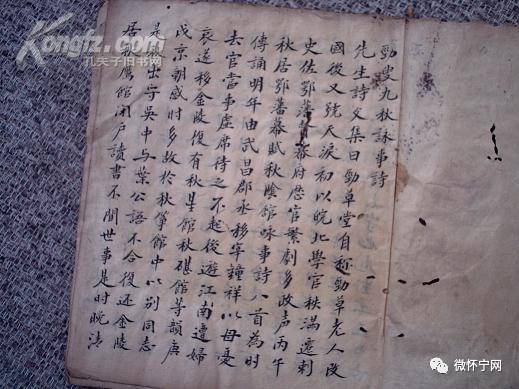 勁叟九秋詠事詩
先生詩文集曰勁草堂自称勁草老人改
國後又號天淚初以皖北學官秩滿遷刺
史佐鄂藩幕府歷官繁劇多政声丙午
秋居鄂藩幕賦秋陰館咏事詩八首為时
傳誦明年由武昌郡丞移宰鍾祥以母憂
去官當事虛席待之不起後遊江南遭婦
哀遂移金陵復有秋星館秋碪館等韻庚
戌京朝感时多故於秋筝館中以别同志
是出守吳中与葉公語不合復还金陵
居鷹館闭户讀書不聞世事是时晚清
Kongfz.com
孔夫子旧书网
微怀宁网